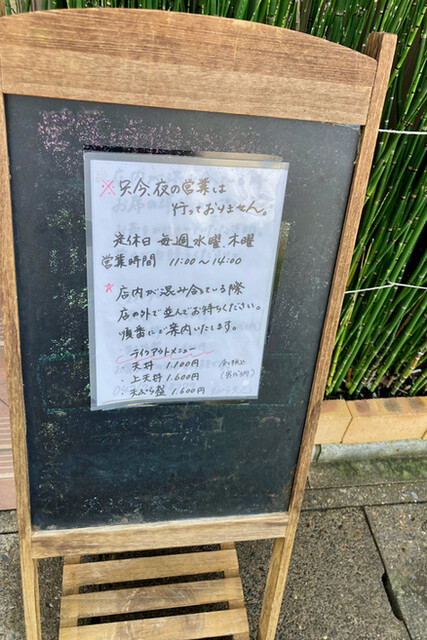 ※只今、夜の営業は
行っておりません。
定休日 毎週水曜、木曜
営業時間 11:00〜14:00
店内が混み合っている際
店の外で並んでお待ちください。
順番にご案内いたします。
テイクアウトメニュー
・天丼 1.100円
・上天丼 1.600円
・天ぷら盛 1.600円